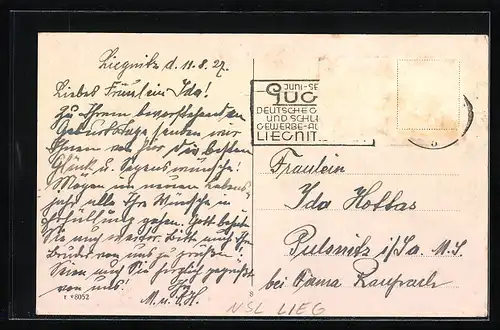 Liegnitz d. 11.8.27.
Liebes Fräulein Ida!
Zu Ihrem bevorstehenden
Geburtstage senden wir
Ihnen von hier die besten
Glück u. Segenswünsche!
Mögen im neuen Lebens-
jahr alle Ihre Wünsche in
Erfüllung gehen. Gott behüte
Sie auch weiter. Bitte auch Ihr
Bruder von uns zu grüßen.
Seien auch Sie herzlich gegrüßt
von uns!
M. u. F. H.
r 8052
JUNI-SE
GUG
DEUTSCHE G
UND SCHL
GEWERBE-A
LIEGNIT
Fräulein
Ida Hottas
Pulsnitz i/Sa. M.S.
bei Fama
NSL LIEG